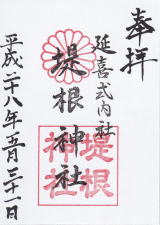 奉拝
延喜式内社
堤根神社
平成二十八年五月三十一日
堤根
神社